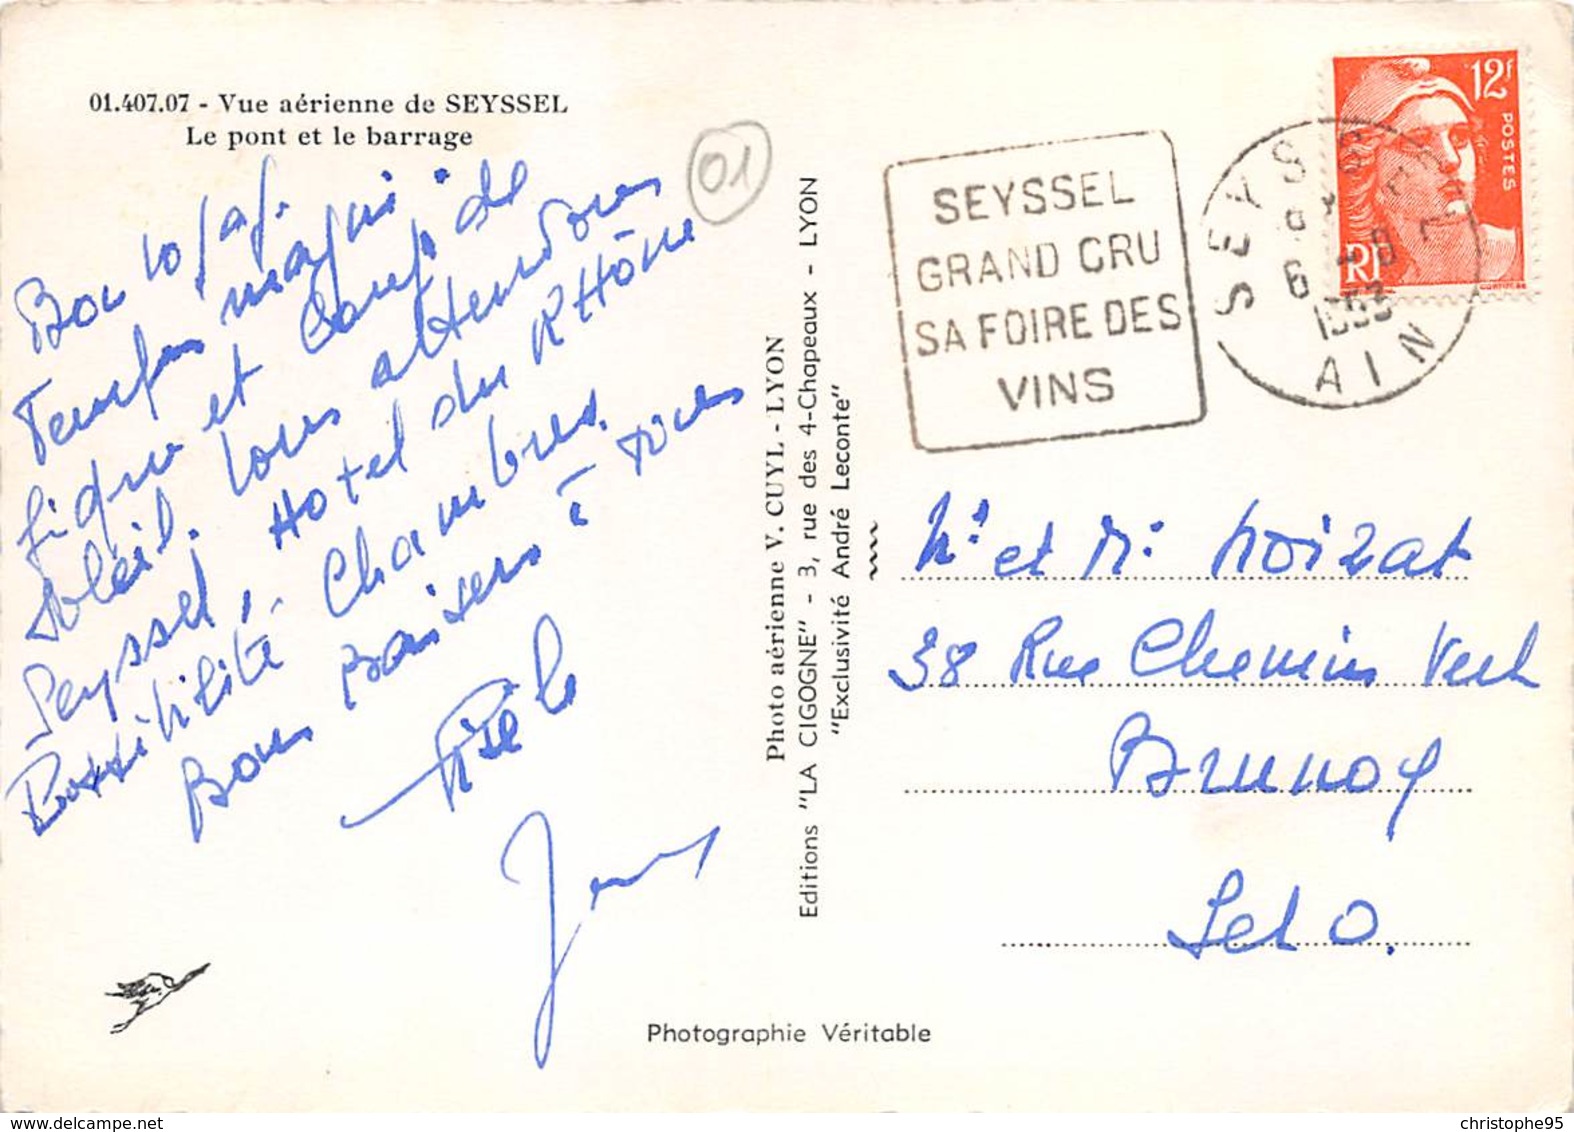 01.407.07 - Vue aérienne de SEYSSEL
Le pont et le barrage
01
Bon
Temps magni-
fique et Camp de
Soleil. Vous attendons
Seyssel, Hotel du RHône
Possibilité Chambres.
Bons Baisers à tous
Photo aérienne V. CUYL - LYON
Editions "LA CIGOGNE" - 3, rue des 4-Chapeaux - LYON
"Exclusivité André Leconte"
SEYSSEL
GRAND CRU
SA FOIRE DES
VINS
SEYSSEL
6 - 9
1953
AIN
12F
POSTES
RF
Mr et Me Noizat
38 Rue Chemin Vert
Brunoy
S et O.
Photographie Véritable
christophe95